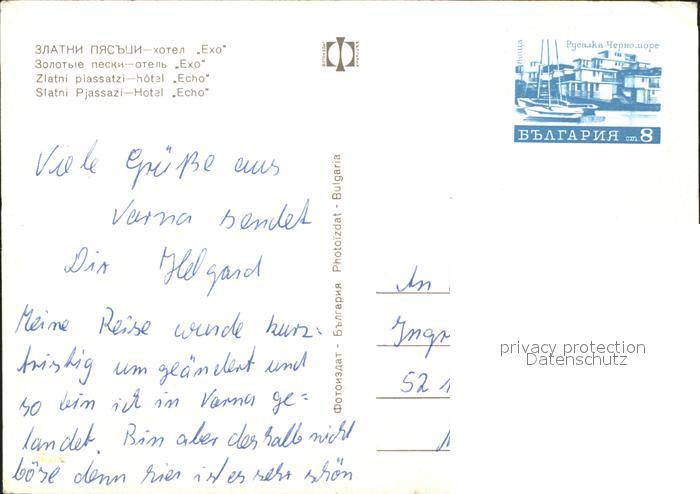 ЗЛАТНИ ПЯСЪЦИ—хотел „Ехо"
Золотые пески—отель „Ехо"
Zlatni piassatzi—hôtel „Echo"
Slatni Pjassazi—Hotel „Echo"
Русалка Черноморе
БЪЛГАРИЯ ст. 8
Viele Grüße aus
Varna sendet
Dir Helgard
Meine Reise wurde kurz=
fristig um geändert und
so bin ich in Varna ge=
landet. Bin aber deshalb nicht
böse denn hier ist es sehr schön
Фотоиздат - България Photoizdat - Bulgaria
An
Ingr
52
privacy protection
Datenschutz